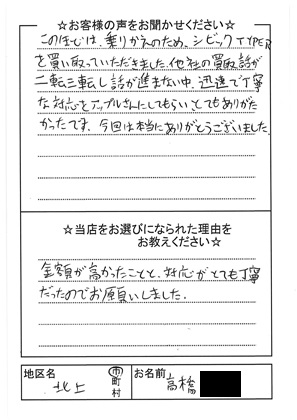 ☆お客様の声をお聞かせください☆
このたびは、乗りかえのため、シビックTYPER
を買い取っていただきました。他社の買取話が
二転三転し話が進まない中、迅速で丁寧
な対応をアップルさんにしてもらいとてもありがた
かったです。今回は本当にありがとうございました。
☆当店をお選びになられた理由を
お教えください☆
金額が高かったことと、対応がとても丁寧
だったのでお願いしました。
地区名 北上 市町村 お名前 高橋